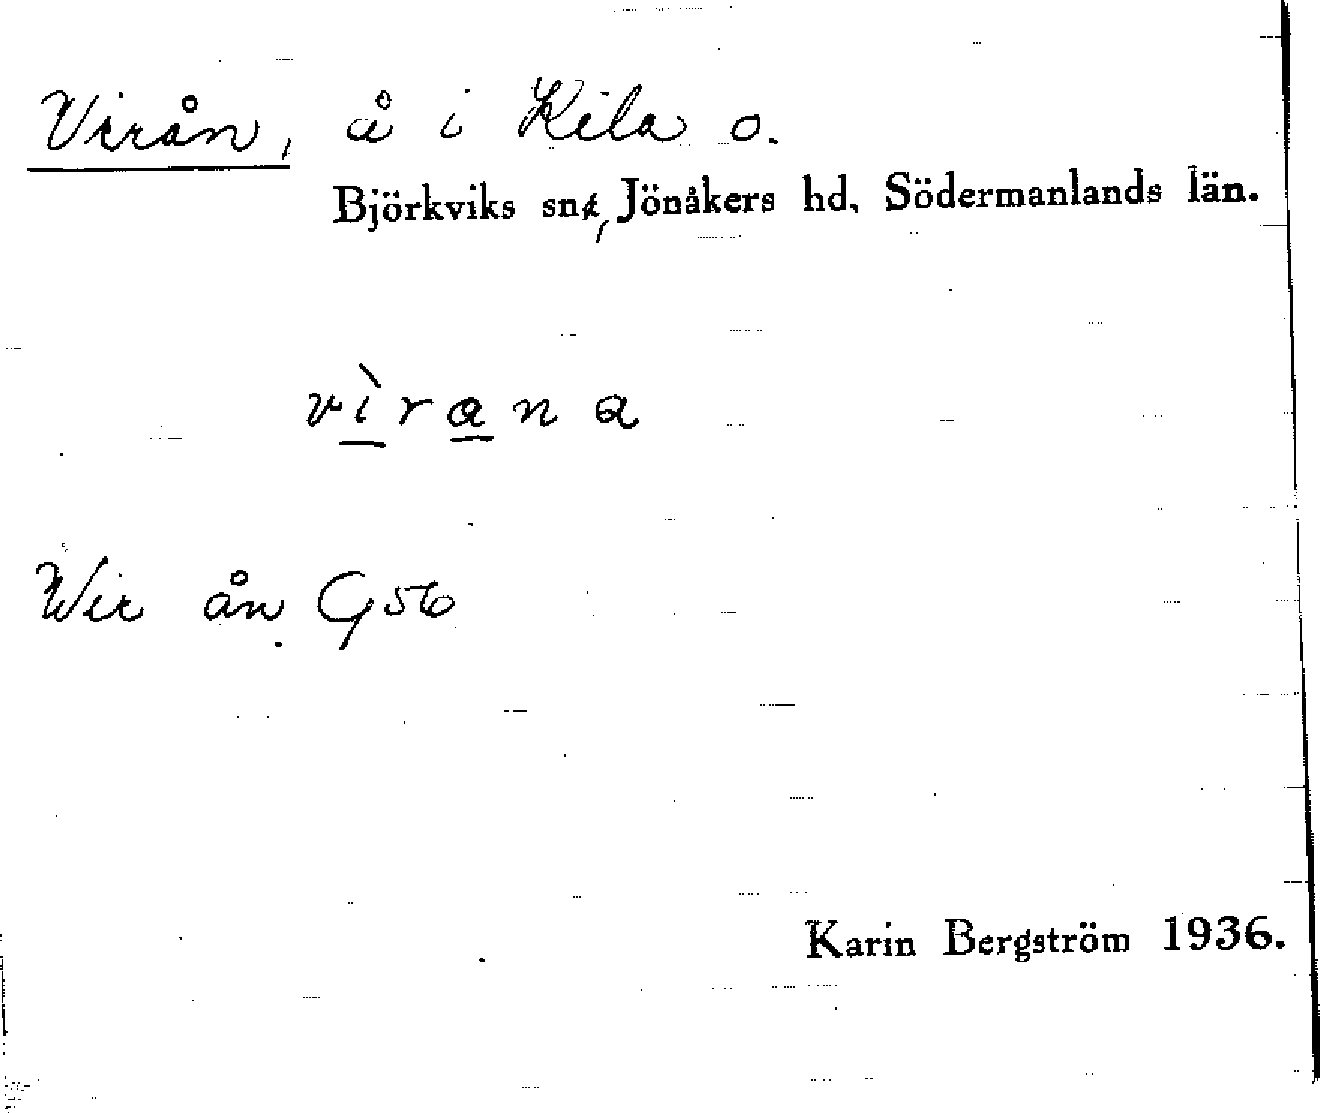 Virån, å i Kila o.
Björkviks snr, Jönåkers hd, Södermanlands län.
vìrana
Wir ån G56
Karin Bergström 1936.